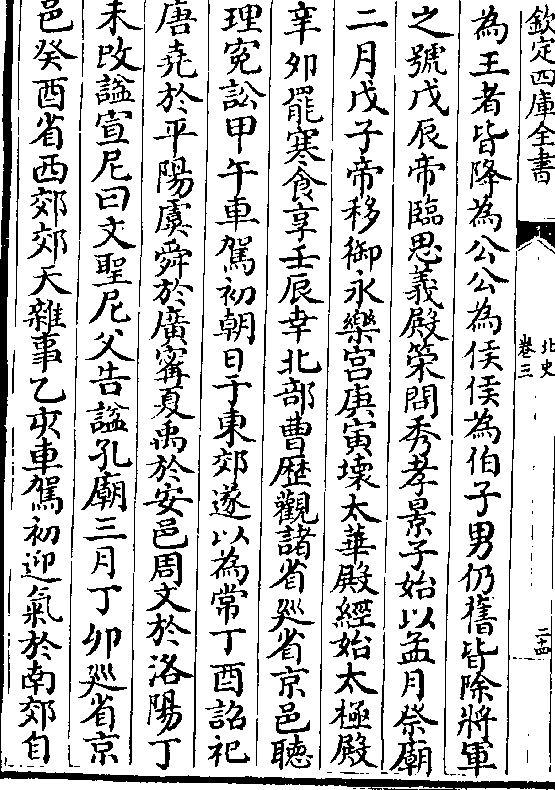 欽定四庫全書
北史
卷三
二十四
為王者皆降為公公為侯侯為伯子男仍舊皆除將軍
之號戊辰帝臨思義殿策問秀孝景子始以孟月祭廟
二月戊子帝移御永樂宫庚寅壊太華殿經始太極殿
辛夘罷寒食享壬辰幸北部曹歴觀諸省廵省京邑聽
理寃訟甲午車駕初朝日于東郊遂以為常丁酉詔祀
唐堯於平陽虞舜於廣寗夏禹於安邑周文於洛陽丁
未改諡宣尼曰文聖尼父告諡孔廟三月丁夘廵省京
邑癸酉省西郊郊天雜事乙亥車駕初迎氣於南郊自